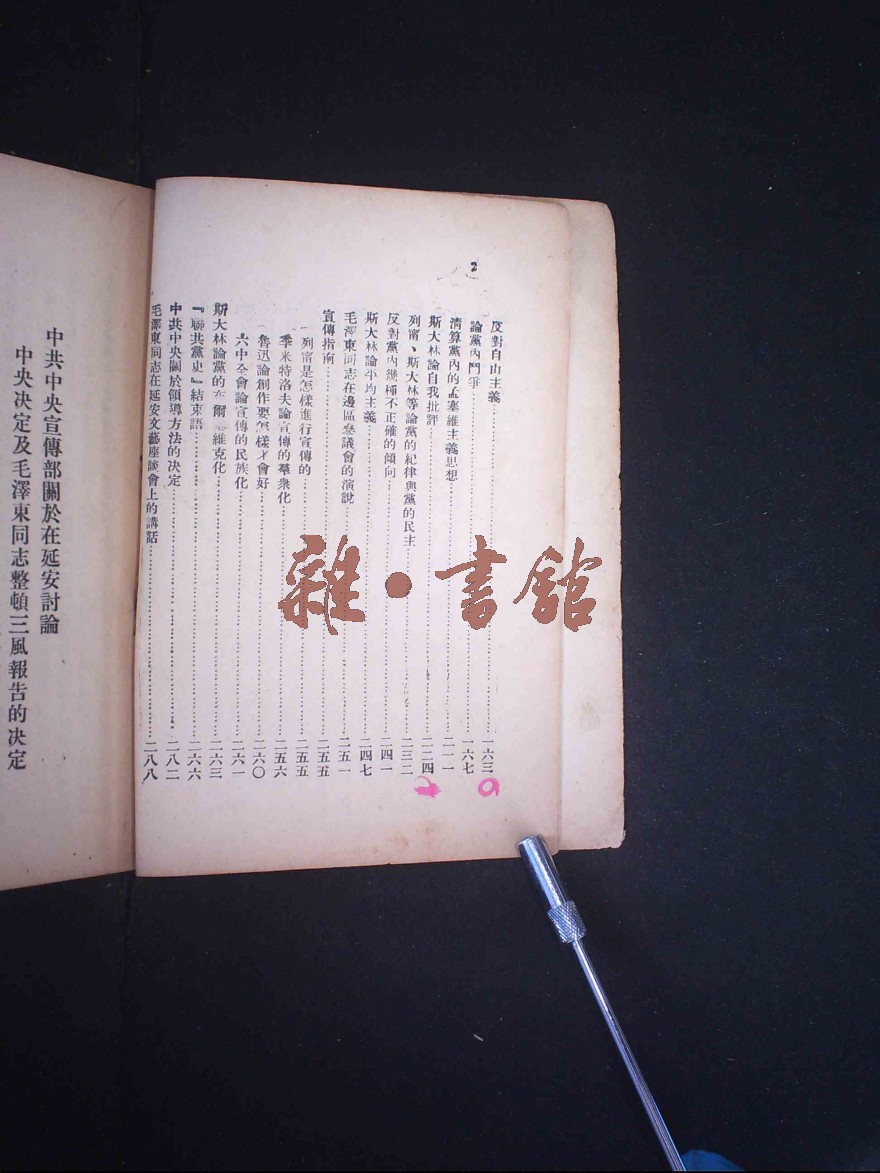 2
反對自由主義……一六三
論黨內鬥爭……一六七
清算黨內的孟塞維主義思想……二一一
斯大林論自我批評……二二四
列甯、斯大林等論黨的紀律與黨的民主……二三二
反對黨內幾種不正確的傾向……二四一
斯大林論平均主義……二四七
毛澤東同志在邊區參議會的演說……二五一
宣傳指南……二五五
列甯是怎樣進行宣傳的……二五五
季米特洛夫論宣傳的羣衆化……二五六
魯迅論創作要怎樣才會好……二六〇
六中全會論宣傳的民族化……二六一
斯大林論黨的布爾 維克化……二六三
『聯共黨史』結束語……二六六
中共中央關於領導方法的決定……二八二
毛澤東同志在延安文藝座談會上的講話……二八八
中共中央宣傳部關於在延安討論
中央决定及毛澤東同志整頓三風報告的决定
雜·書館